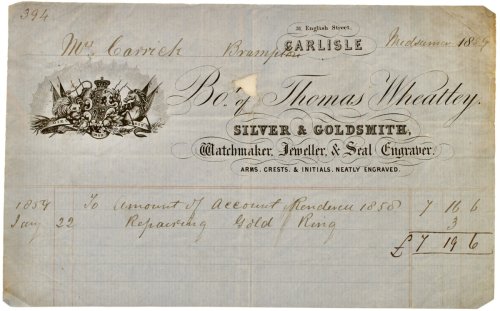 394
31 English Street,
CARLISLE
Mrs Carrick Brampton Midsumer 1859
Bo.t of Thomas Wheatley.
SILVER & GOLDSMITH,
Watchmaker, Jeweller, & Seal Engraver.
ARMS. CRESTS. & INITIALS. NEATLY ENGRAVED.
1859 To Amount of Account Rendered 1858 7 16 6
Jany 22 Repairing Gold Ring 3
£ 7 19 6